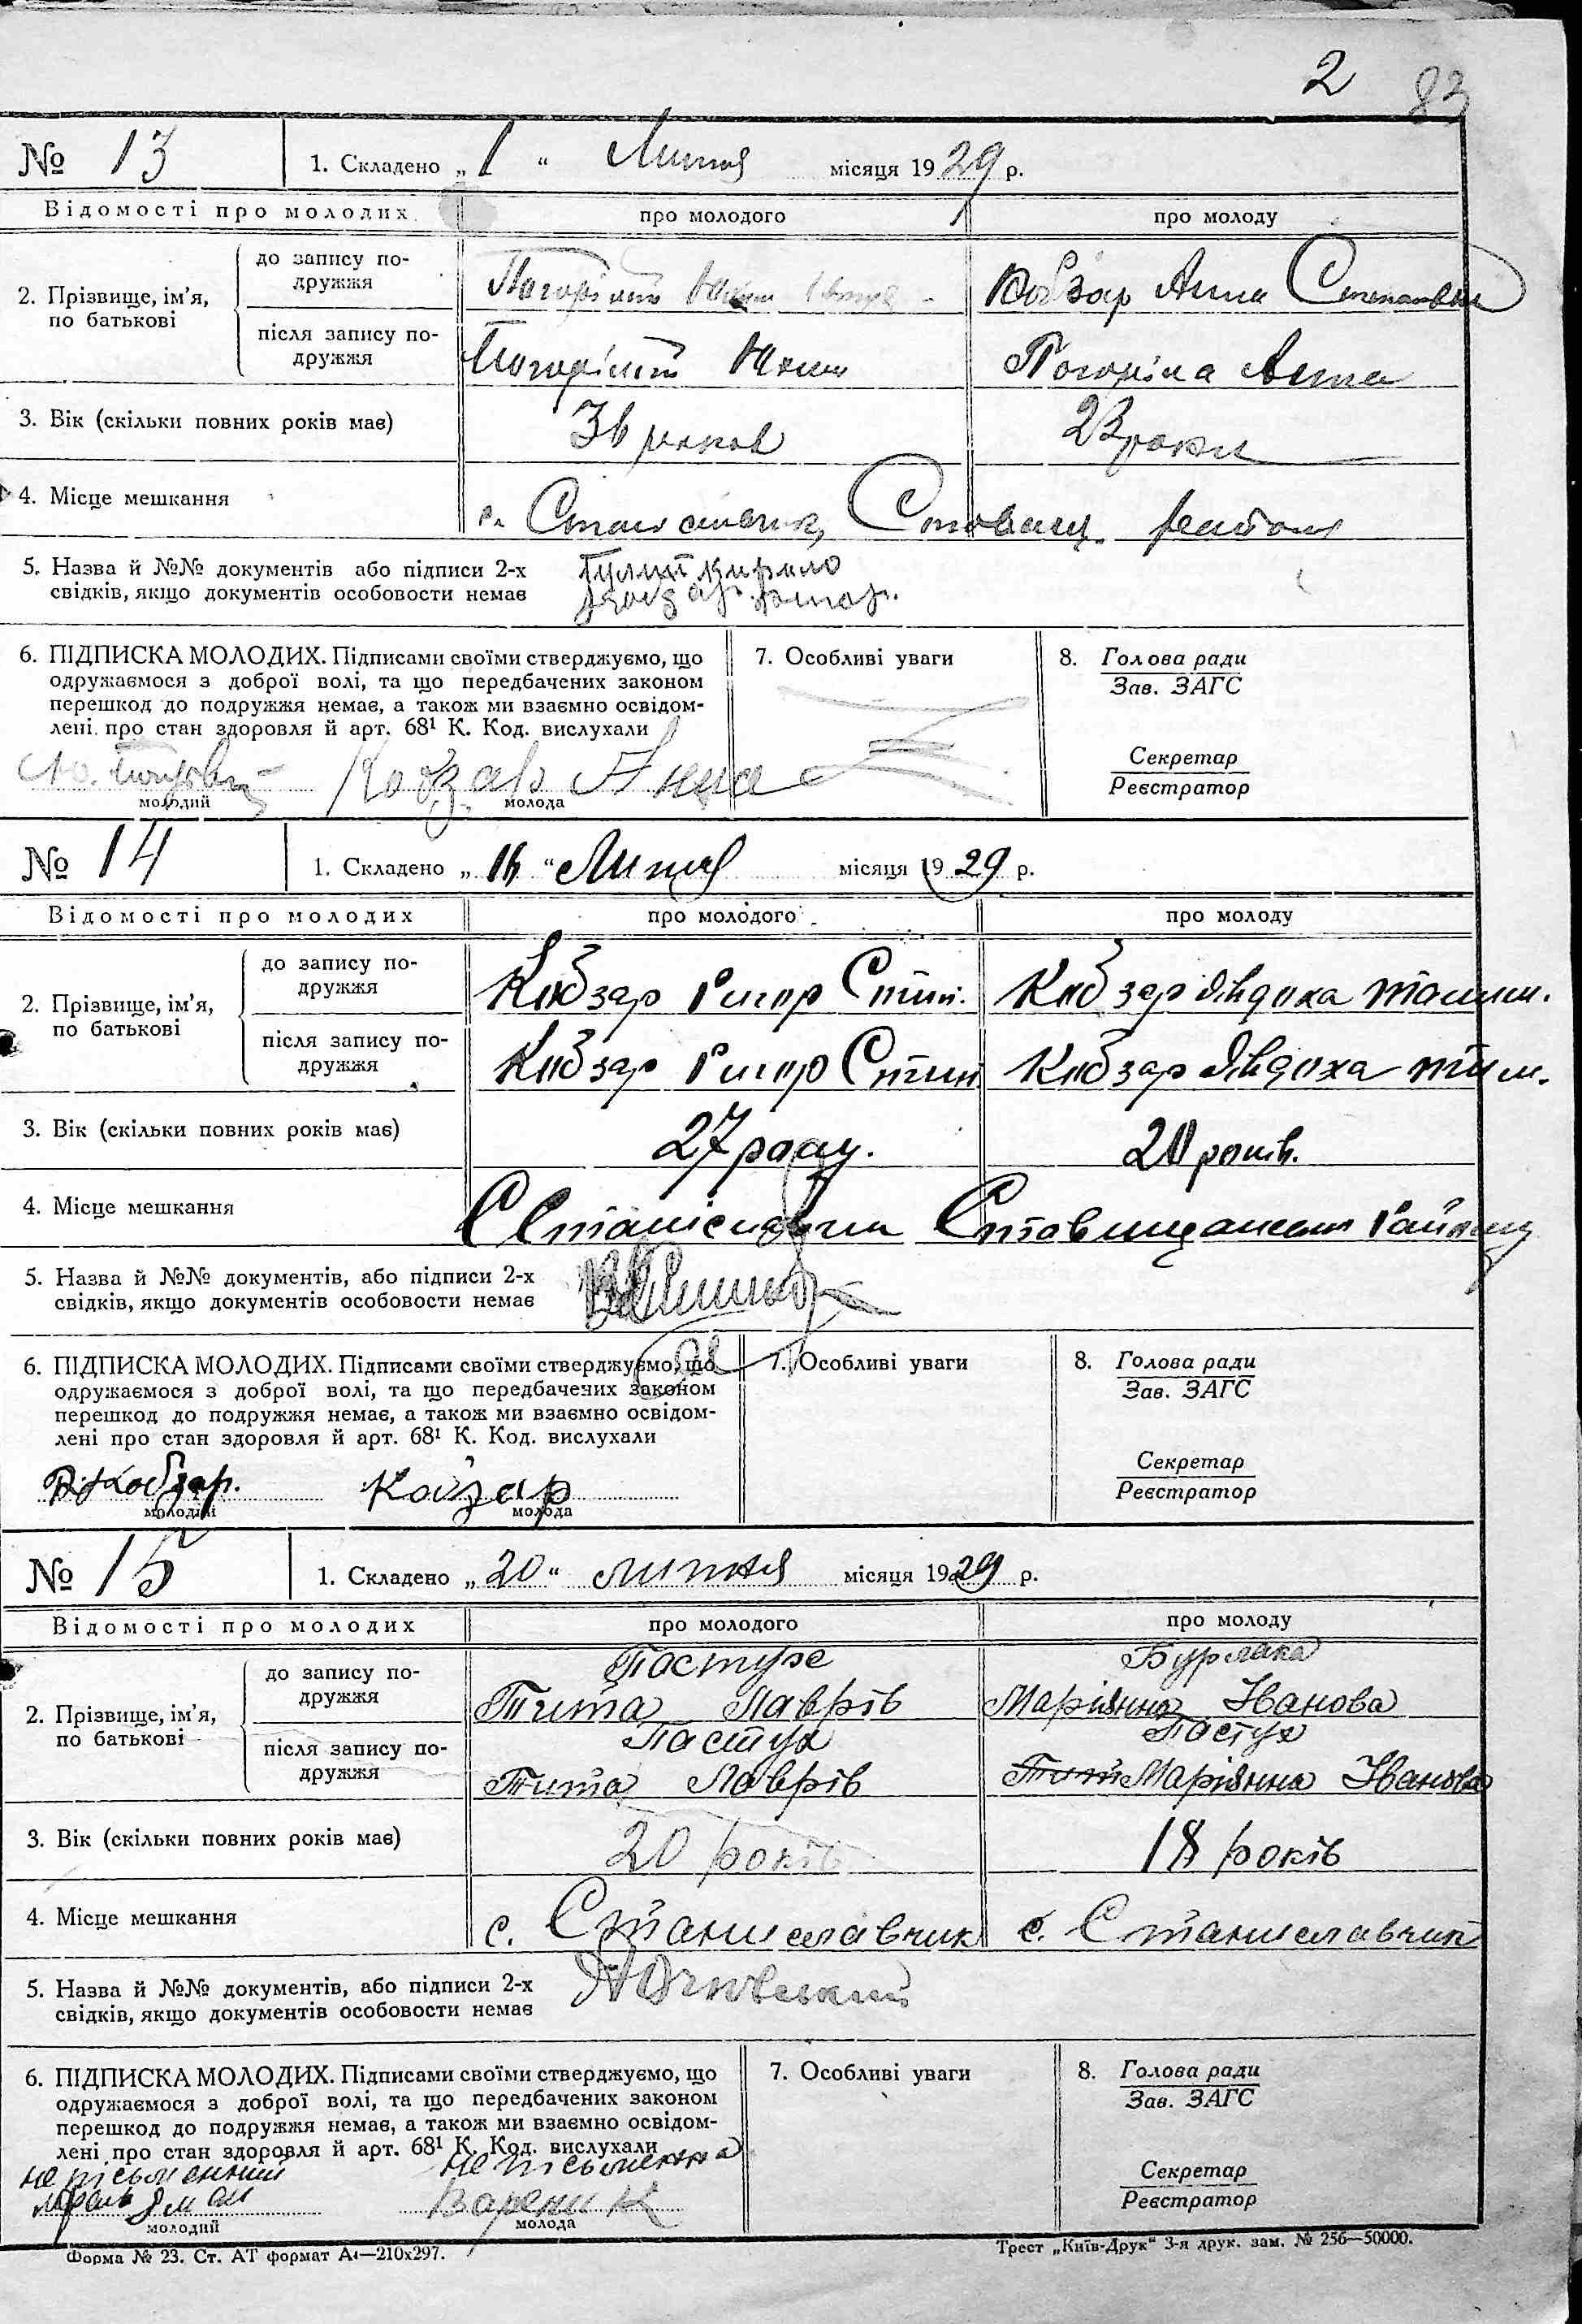 2 83
№ 13 1. Складено „ 1 “ Липня місяця 1929 р.
Відомості про молодих про молодого про молоду
2. Прізвище, ім’я, по батькові
до запису по-
дружжя
Кобзар Анна Степановна
після запису по-
дружжя
Погоріла Анна
3. Вік (скільки повних років має) 36 роков 23 роки
4. Місце мешкання с. Станиславчик, Ставищ. району
5. Назва й №№ документів або підписи 2-х
свідків, якщо документів особовости немає
Кирило
6. ПІДПИСКА МОЛОДИХ. Підписами своїми стверджуємо, що
одружаємося з доброї волі, та що передбачених законом
перешкод до подружжя немає, а також ми взаємно освідом-
лені про стан здоровля й арт. 68¹ К. Код. вислухали
Кобзар Анна
молодий молода
7. Особливі уваги
8. Голова ради
Зав. ЗАГС
Секретар
Реєстратор
№ 14 1. Складено „ 16 “ Липня місяця 1929 р.
Відомості про молодих про молодого про молоду
2. Прізвище, ім’я, по батькові
до запису по-
дружжя
Кобзар Григор Степ. Кобзар Явдоха
після запису по-
дружжя
Кобзар Григор Степ Кобзар Явдоха Тим.
3. Вік (скільки повних років має) 27 року. 20 років.
4. Місце мешкання С Станіславчик Ставищанського Району
5. Назва й №№ документів, або підписи 2-х
свідків, якщо документів особовости немає
6. ПІДПИСКА МОЛОДИХ. Підписами своїми стверджуємо, що
одружаємося з доброї волі, та що передбачених законом
перешкод до подружжя немає, а також ми взаємно освідом-
лені про стан здоровля й арт. 68¹ К. Код. вислухали
Кобзар. Кобзар
молодий молода
7. Особливі уваги
8. Голова ради
Зав. ЗАГС
Секретар
Реєстратор
№ 15 1. Складено „ 20 “ липня місяця 1929 р.
Відомості про молодих про молодого про молоду
2. Прізвище, ім’я, по батькові
до запису по-
дружжя
Пастух Бурлака
Тита Лаврів Маріянна Іванова
після запису по-
дружжя
Пастух Пастух
Тита Лаврів Тит Маріянна Іванова
3. Вік (скільки повних років має) 20 років 18 років
4. Місце мешкання с. Станиславчик с. Станиславчик
5. Назва й №№ документів, або підписи 2-х
свідків, якщо документів особовости немає
6. ПІДПИСКА МОЛОДИХ. Підписами своїми стверджуємо, що
одружаємося з доброї волі, та що передбачених законом
перешкод до подружжя немає, а також ми взаємно освідом-
лені про стан здоровля й арт. 68¹ К. Код. вислухали
не пісьменний не пісьменна
Вареник
молодий молода
7. Особливі уваги
8. Голова ради
Зав. ЗАГС
Секретар
Реєстратор
Форма № 23. Ст. АТ формат А4—210х297. Трест „Київ-Друк“ 3-я друк. зам. № 256—50000.